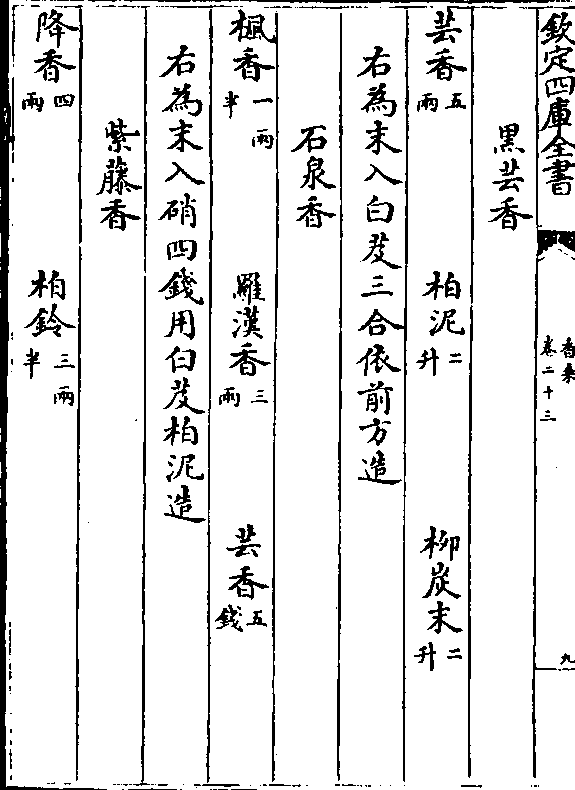 欽定四庫全書
香乗
卷二十三
九
黒芸香
芸香五兩 柏泥二升 柳炭末二升
右為末入白芨三合依前方造
石泉香
楓香一兩半 羅漢香三兩 芸香五錢
右為末入硝四錢用白芨柏泥造
紫藤香
降香四兩 柏鈴三兩半